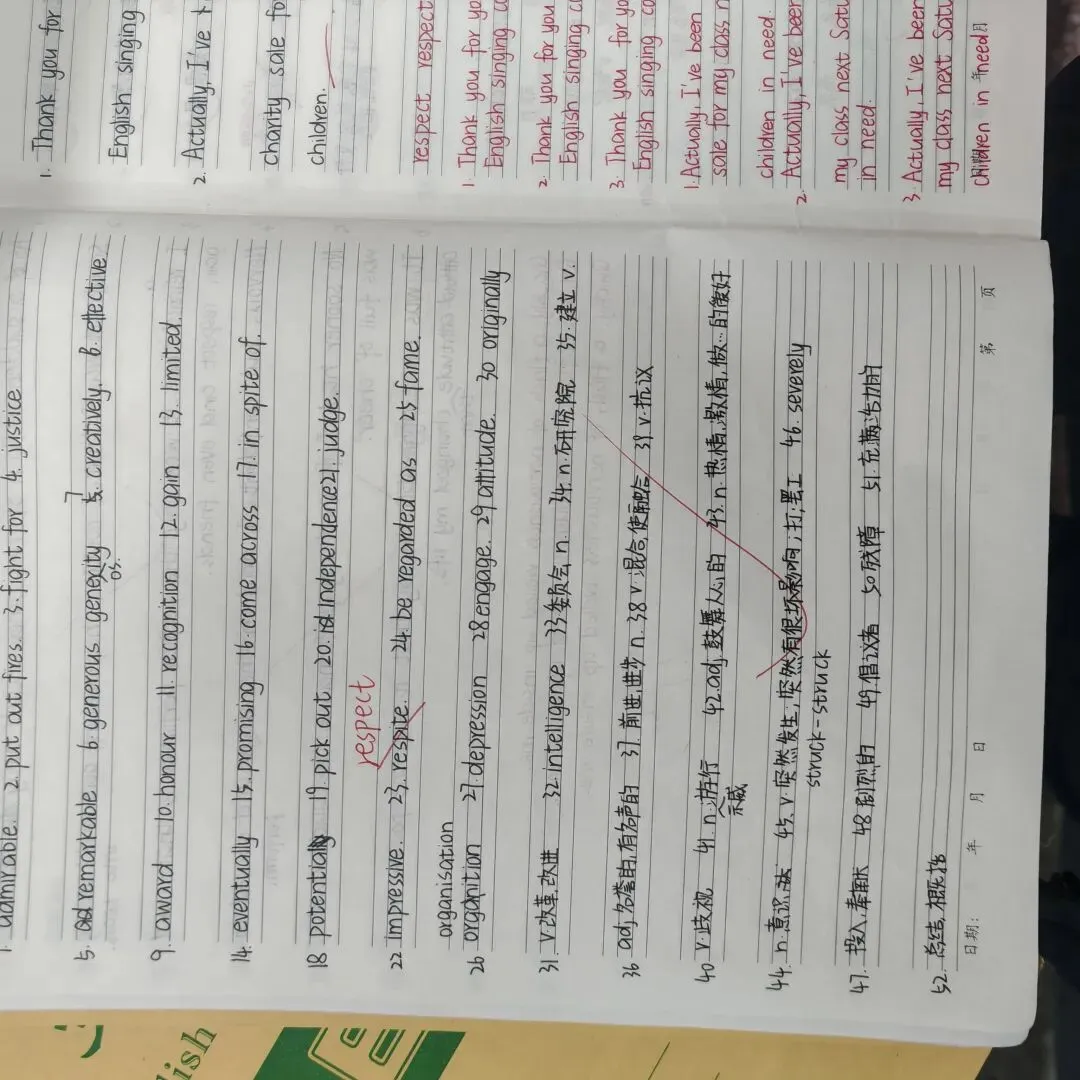 1. Thank you for
English singing
2. Actually, I've
charity sale fo
children.
respect respect
1. Thank you for yo
English singing co
2. Thank you for you
English singing co
3. Thank you for yo
English singing co
1. Actually, I've been
sale for my class n
children in need.
2. Actually, I've been
my class next Satu
in need.
3. Actually, I've been
my class next Satu
children in need
月
1. admirable. 2. put out fires. 3. fight for 4. justice
5. remarkable 6. generous generosity 7. creatively. 8. effective
9. award 10. honour 11. recognition 12. gain 13. limited
14. eventually 15. promising 16. come across 17. in spite of.
18 potentially 19. pick out 20. independence 21. judge.
respect
22 impressive. 23. respite. 24. be regarded as 25 fame.
organisation
26 orgnition 27. depression 28 engage. 29 attitude. 30 originally
31. v.改革,改进 32. intelligence 33 委员会, n. 34. n.研究院 35. 建立 v.
36 adj 名誉的,有名声的 37. 前进,进步 n. 38 v.混合,使融合 39 v.抗议
40 v.歧视 41. n.游行 42. adj 鼓舞人心的 43. n.热情,激情,做…的爱好
示威
44. n.意识,法 45. v.突然发生,突然有很坏影响;打;罢工 46. severely
struck-struck
47. 投入,奉献 48 剧烈的 49. 倡议者 50 残障 51. 充满活力的
52. 总结,概括
日期: 年 月 日 第 页
lish